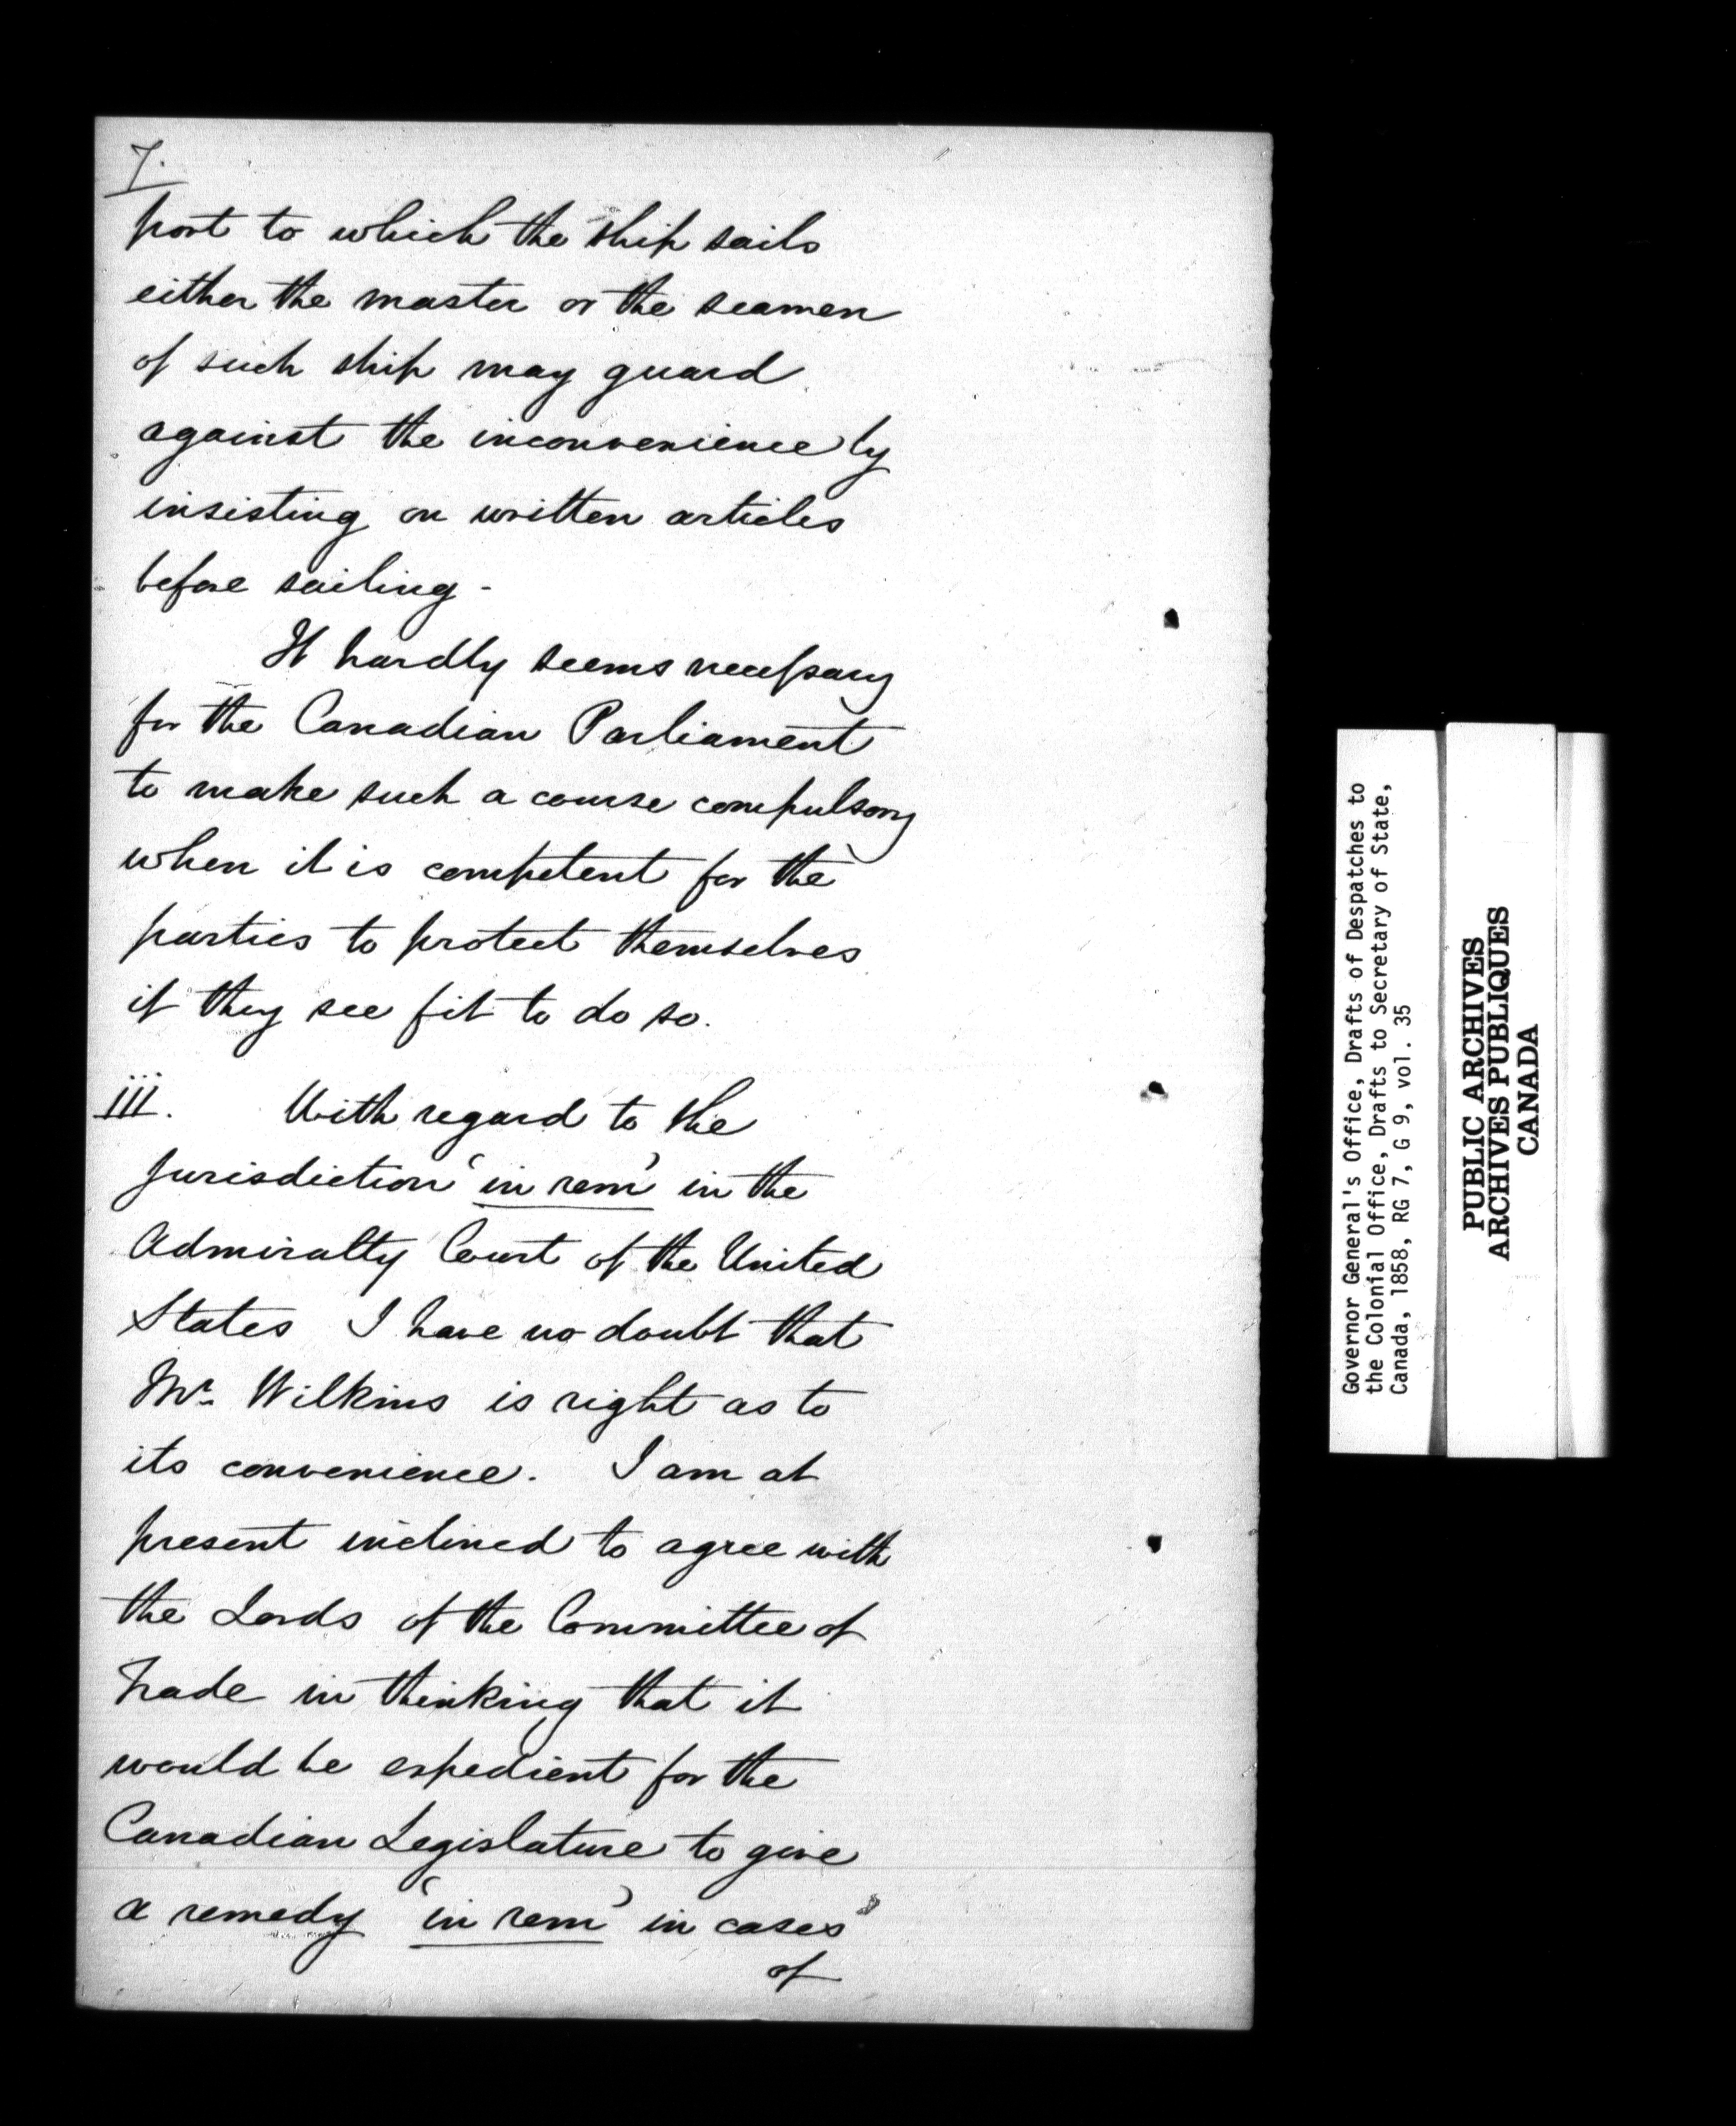 7.
port to which the ship sails
either the master or the seamen
of such ship may guard
against the inconvenience by
insisting on written articles
before sailing -
It hardly seems necessary
for the Canadian Parliament
to make such a course compulsory
when it is competent for the
parties to protect themselves
if they see fit to do so.
iii. With regard to the
jurisdiction 'in rem' in the
Admiralty Court of the United
States I have no doubt that
Mr. Wilkins is right as to
its convenience. I am at
present inclined to agree with
the Lords of the Committee of
Trade in thinking that it
would be expedient for the
Canadian Legislature to give
a remedy 'in rem' in cases
of
Governor General's Office, Drafts of Despatches to
the Colonial Office, Drafts to Secretary of State,
Canada, 1858, RG 7, G 9, vol. 35
PUBLIC ARCHIVES
ARCHIVES PUBLIQUES
CANADA